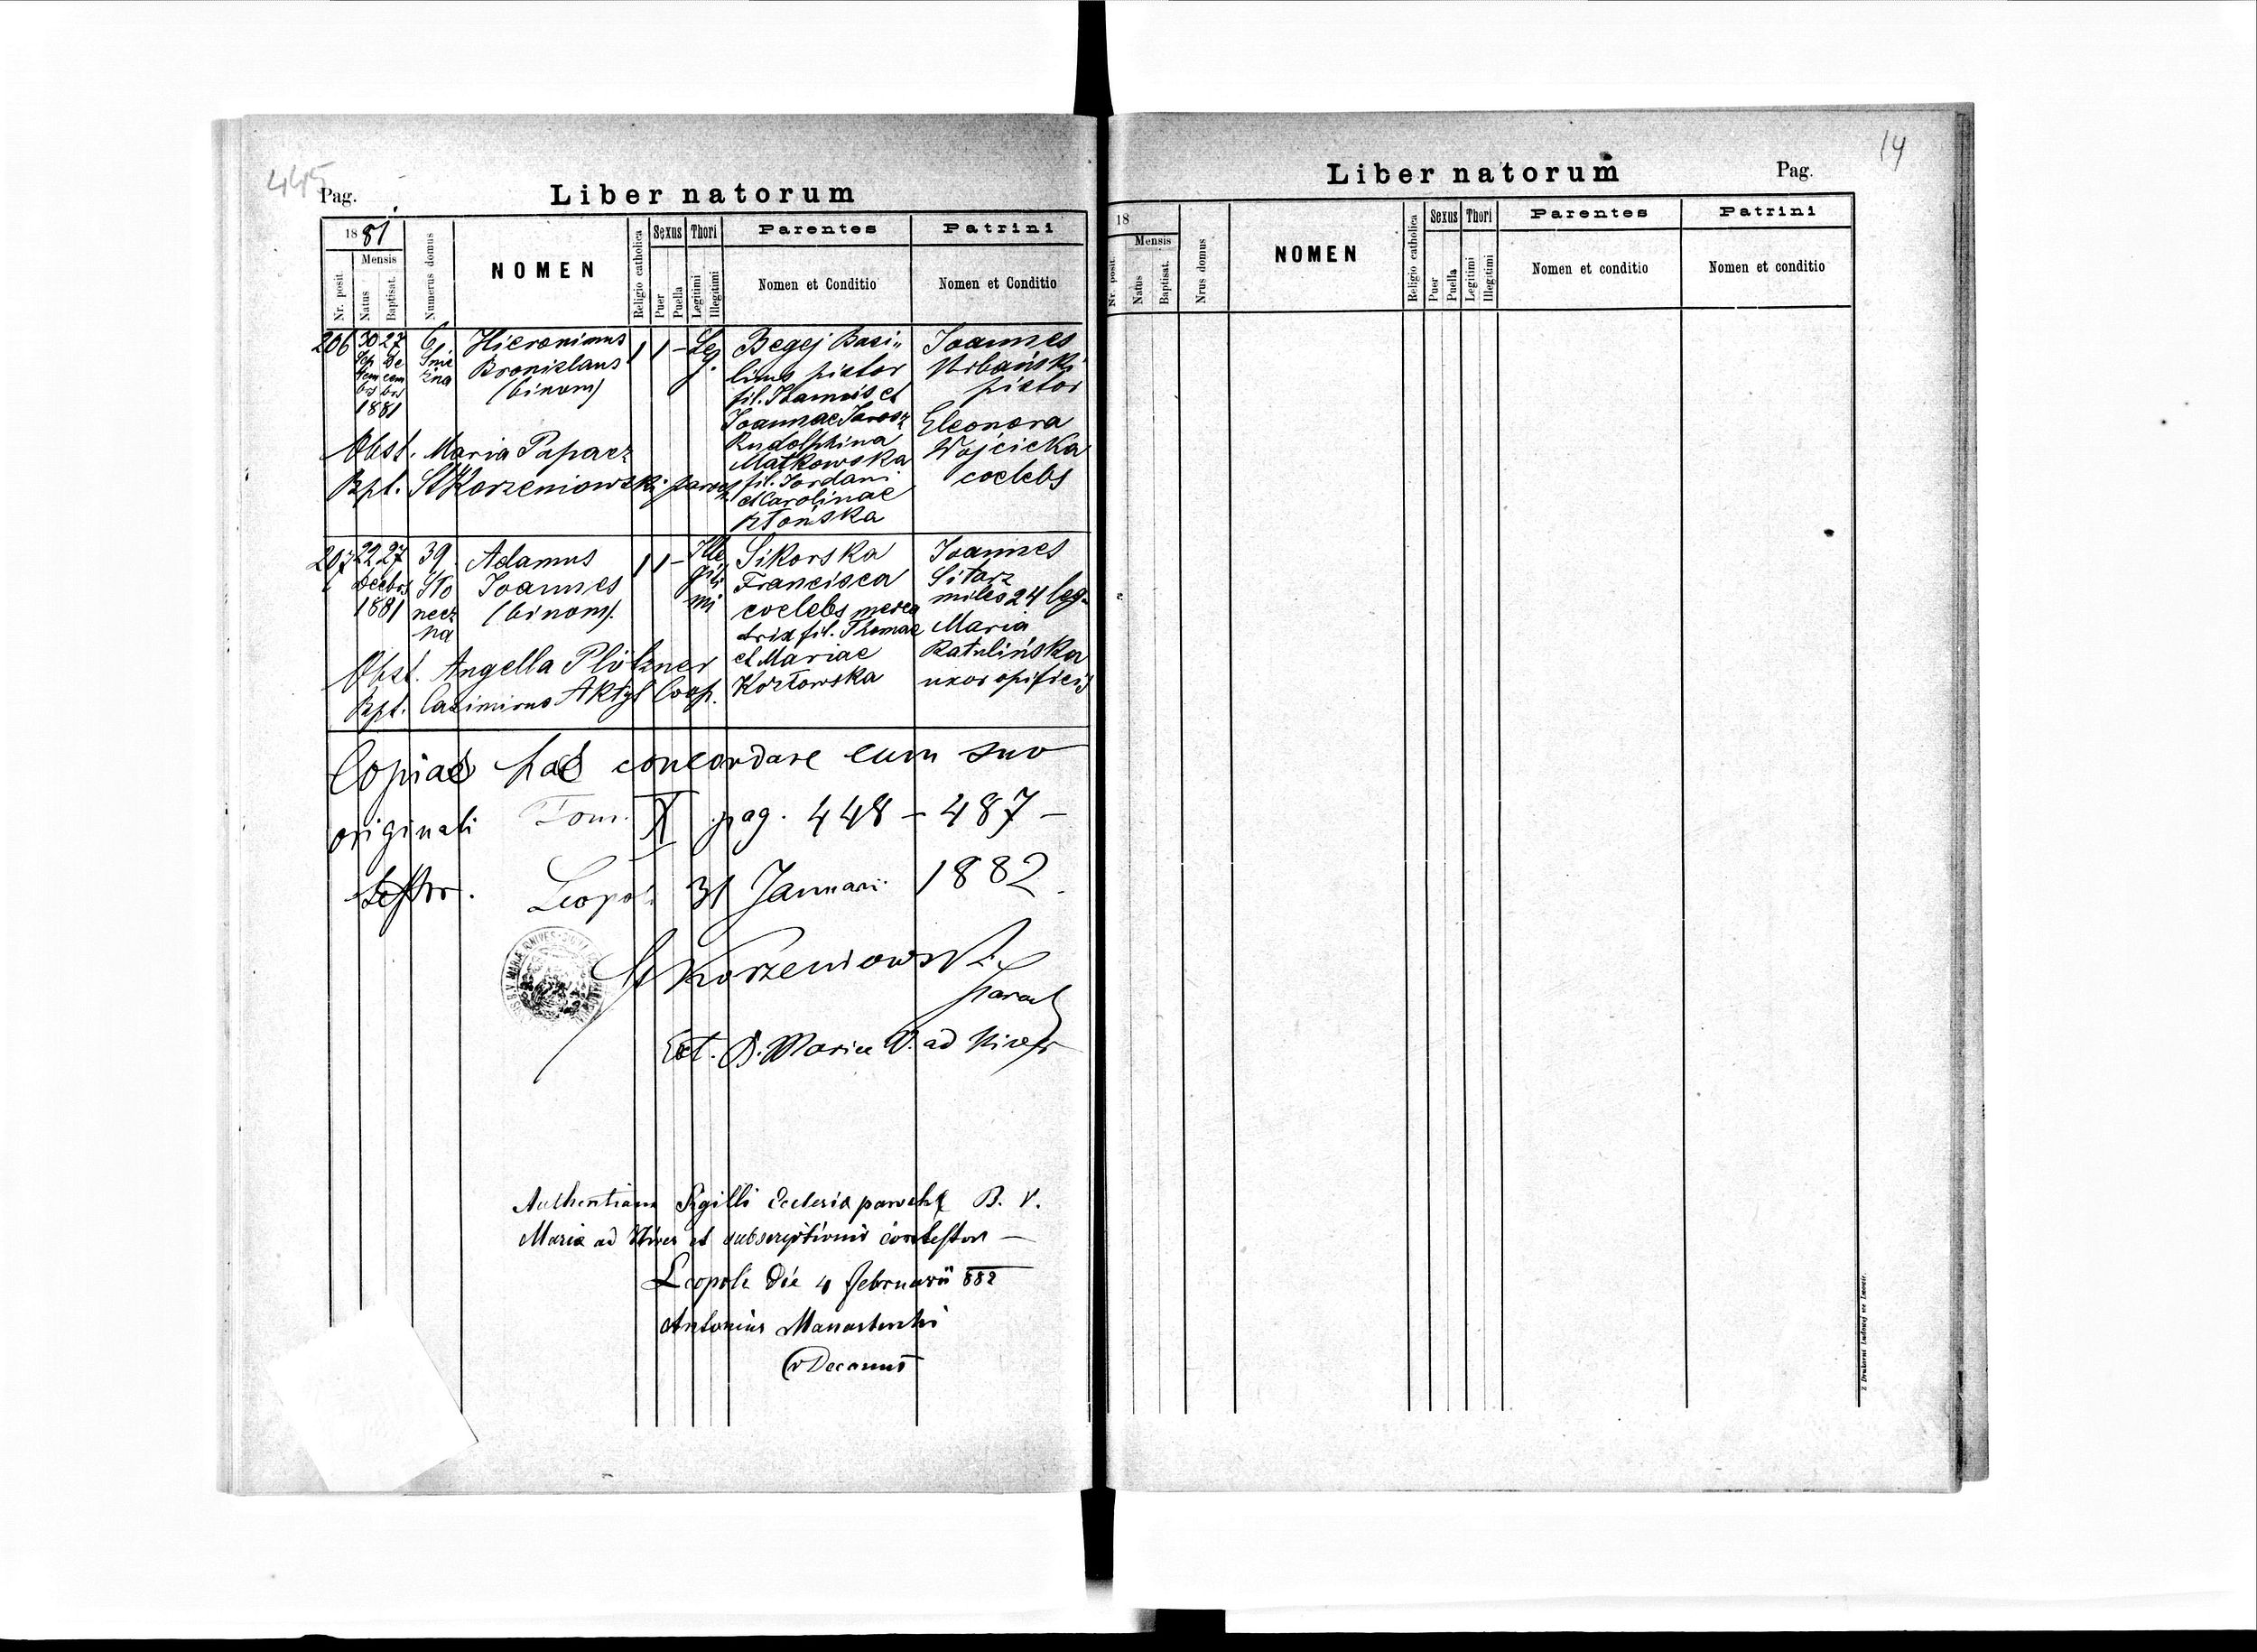 445
Pag.
Liber natorum
1881
Mensis
Nr. posit
Natus
Baptisat.
Numerus domus
NOMEN
Religio catholica
Sexus
Puer
Puella
Thori
Legitimi
Illegitimi
Parentes
Nomen et Conditio
Patrini
Nomen et Conditio
206
30 27
Sep De
tem cem
bris bris
1881
6
Śnie
żna
Hieronimus
Bronislaus
(binom)
1 1 - Leg.
Begej Basi„
lius pictor
fil. Thamis et
Joannae Jarosz
Rudolphina
Małkowska
fil. Jordani
et Carolinae
Błońska
Joannes
Urbański
pictor
Eleonora
Wojcicka
coelebs
Obst. Maria Paparz
Bpt. St Korzeniowski paroch
207
22 27
Decbris
1881
39
Sło
necz
na
Adamus
Joannes
(binom).
1 1 - Ille
giti
mi
Sikorska
Francisca
coelebs merca
trix fil. Thomae
et Mariae
Kozłowska
Joannes
Sitarz
miles 24 leg.
Maria
Ratulińska
uxor opificis
Obst. Angella Plötzner
Bpt. Casimirus Aktyl Coop.
Copias has concordare cum suo
originali Tom. X pag. 448 - 487 -
testor. Leopoli 31 Januarii 1882.
St Korzeniowski
paroch
Eccl. B. Mariae V. ad Nives
Authentiam Sigilli Ecclesiæ paroch B. V.
Mariæ ad Nives et subscriptionis contestor —
Leopoli die 4 februarii 882
Antonius Manasterski
v Decanus
14
Liber natorum
Pag.
18
Mensis
Nr. posit
Natus
Baptisat.
Nrus domus
NOMEN
Religio catholica
Sexus
Puer
Puella
Thori
Legitimi
Illegitimi
Parentes
Nomen et conditio
Patrini
Nomen et conditio
Z Drukarni Ludowej we Lwowie.